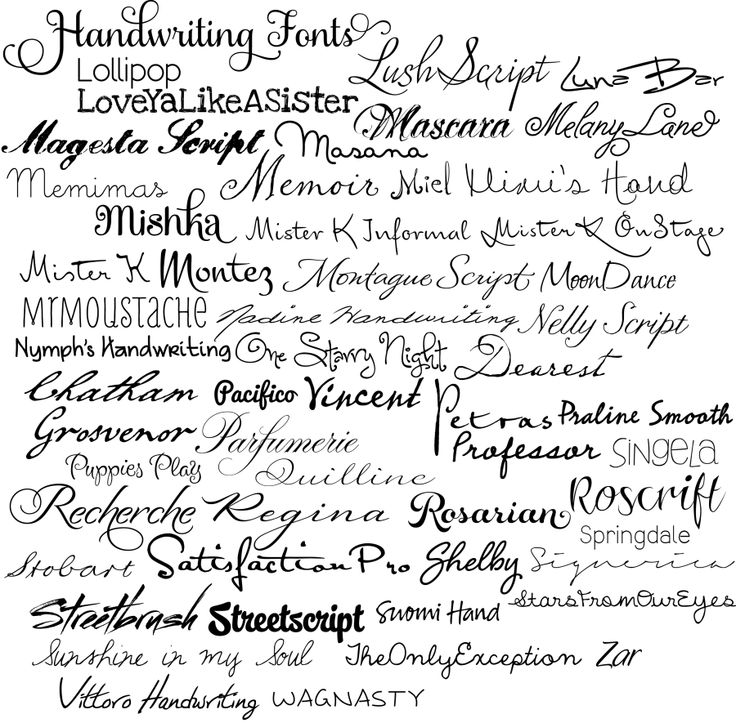 Handwriting Fonts
Lollipop
LushScript Luna Bar
LoveYaLikeASister
Mascara MelanyLane
Magesta Script Masana
Memimas Memoir Miel Mimi's Hand
Mishka Mister K Informal Mister K OnStage
Mister K Montez Montague Script MoonDance
MrMoustache Nadine Handwriting Nelly Script
Nymph's Handwriting One Starry Night Dearest
Chatham Pacifico Vincent Petras Praline Smooth
Grosvenor Parfumerie Professor Singela
Puppies Play Quilline
Recherche Regina Rosarian Roscrift
Springdale
Stobart SatisfactionPro Shelby Signerica
StarsFromOurEyes
Streetbrush Streetscript Suomi Hand
Sunshine in my Soul TheOnlyException Zar
Vittoro Handwriting WAGNASTY